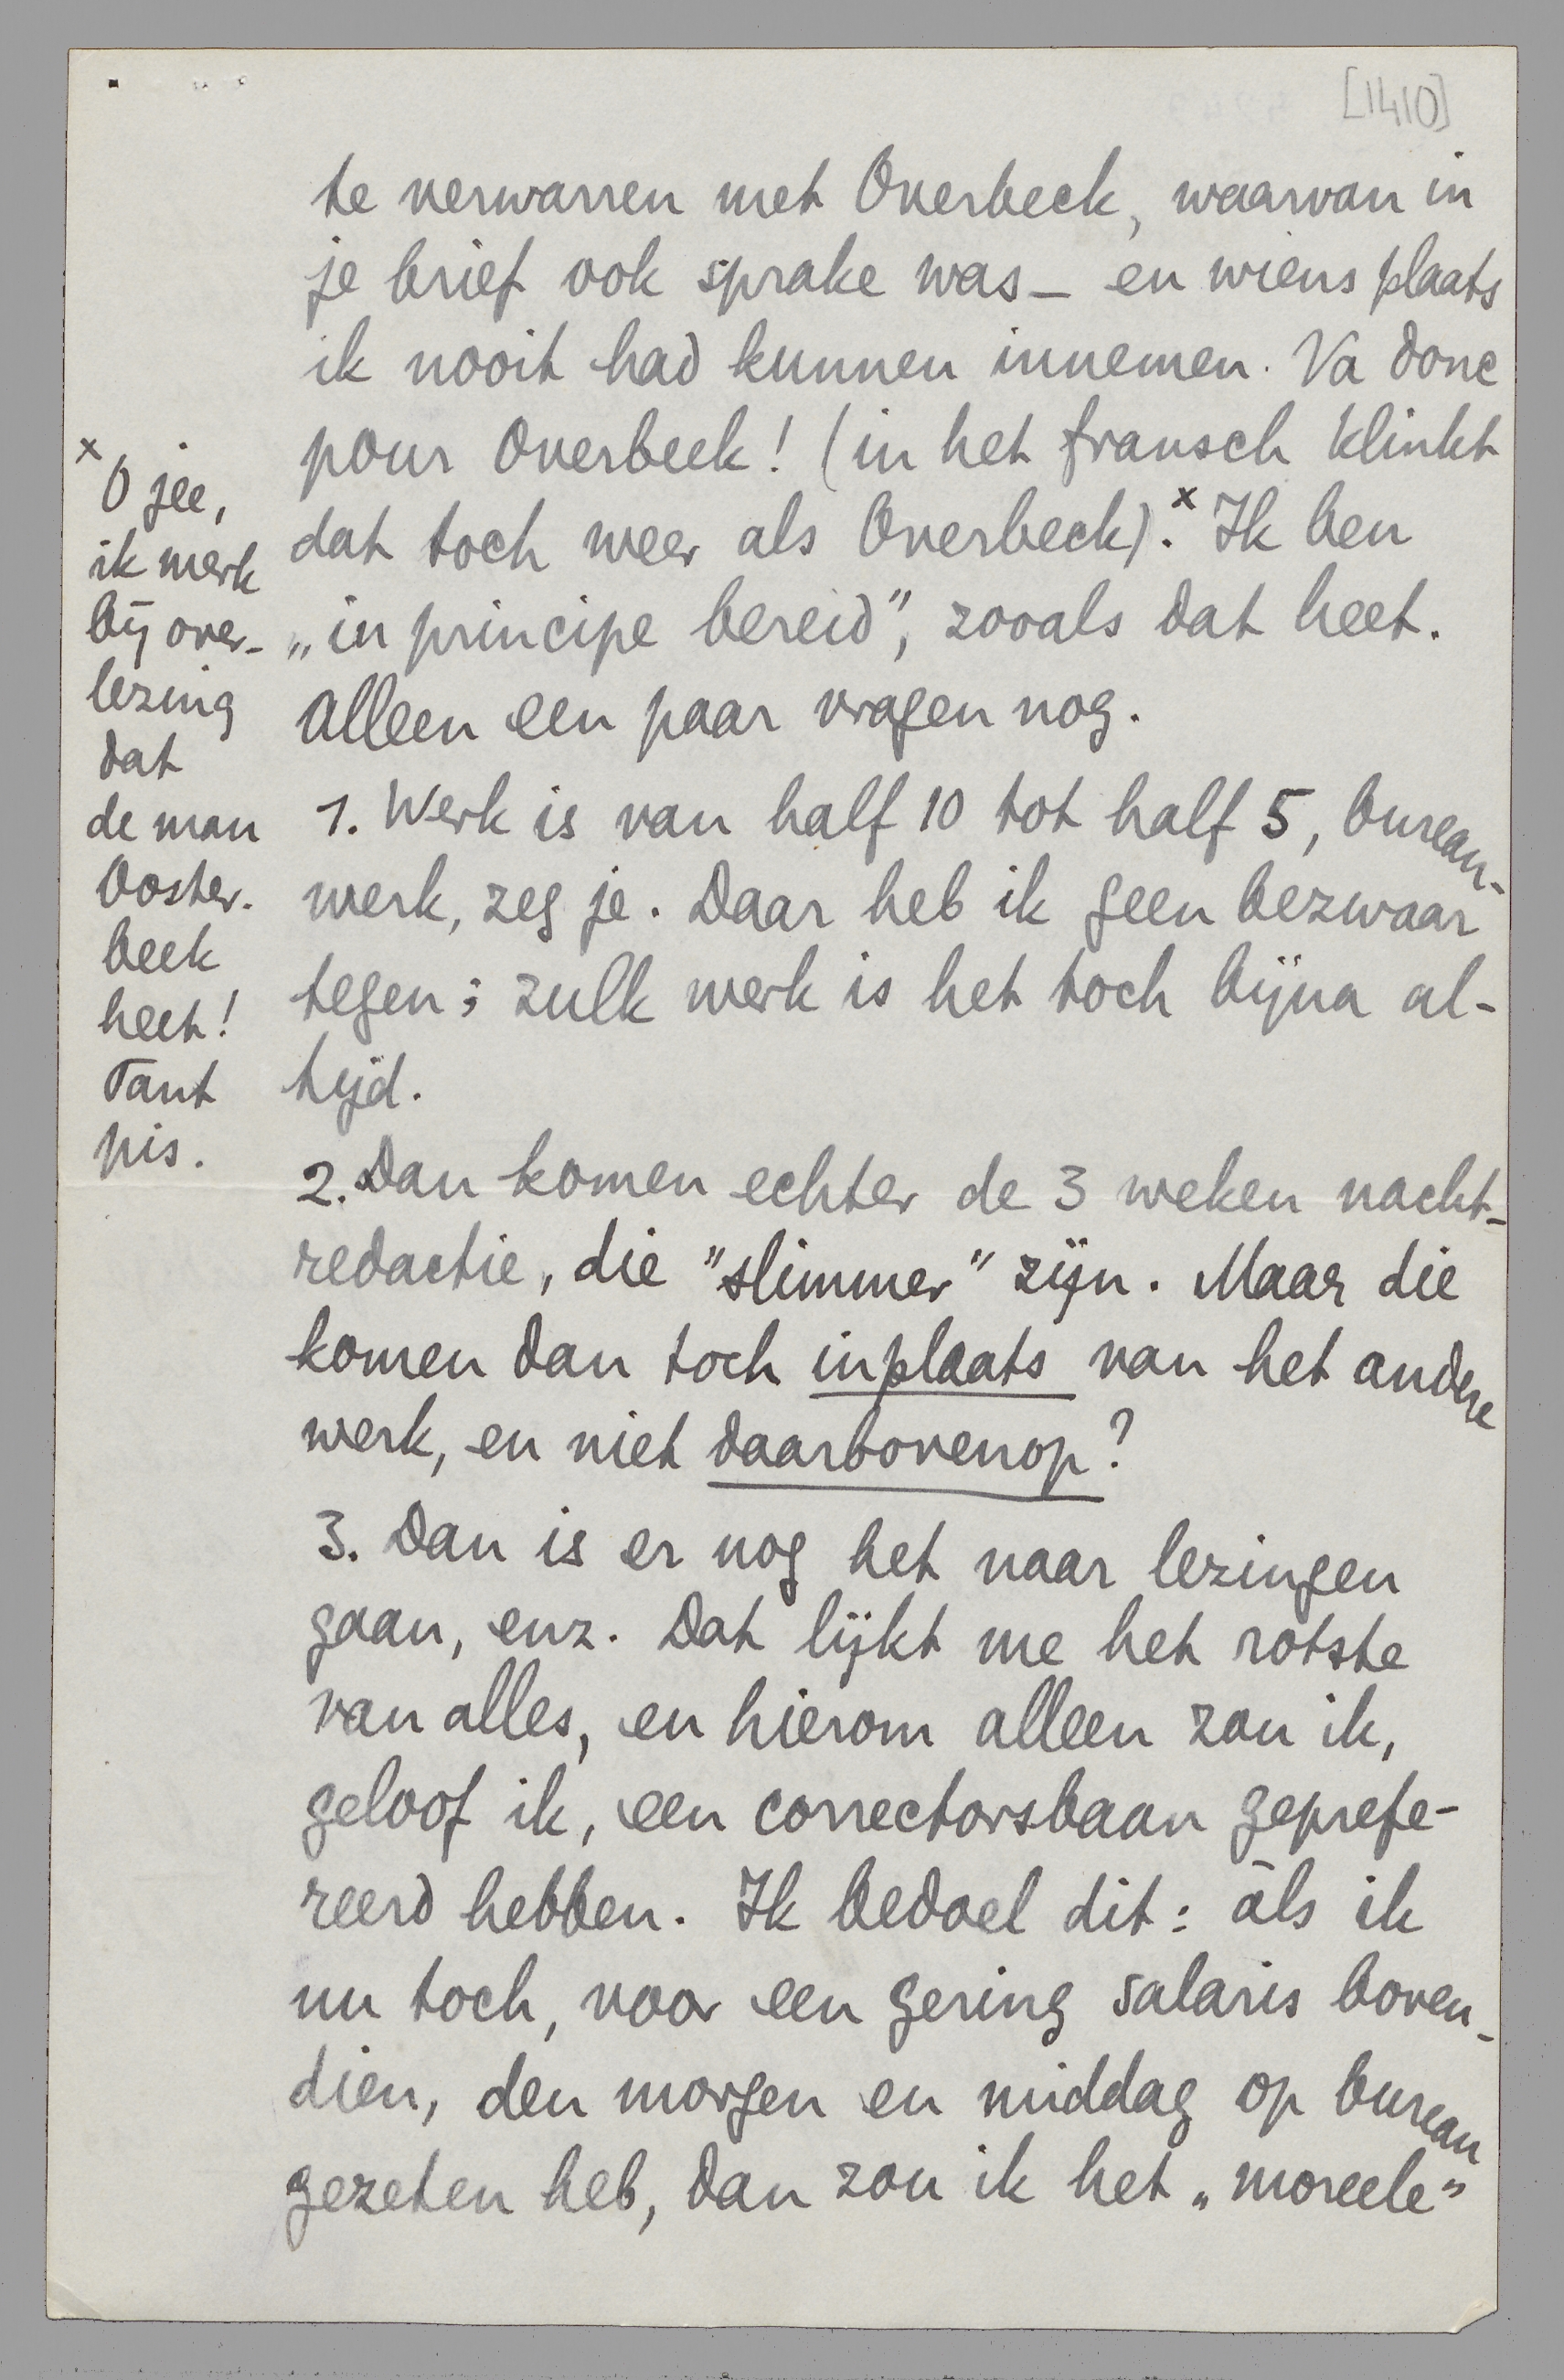 [1410]
te verwarren met Overbeck, waarvan in
je brief ook sprake was – en wiens plaats
ik nooit had kunnen innemen. Va donc
pour Overbeek! (in het fransch klinkt
dat toch weer als Overbeck).ˣ Ik ben
„in principe bereid”, zooals dat heet.
Alleen een paar vragen nog.
1. Werk is van half 10 tot half 5, bureau-
werk, zeg je. Daar heb ik geen bezwaar
tegen; zulk werk is het toch bijna al-
tijd.
2. Dan komen echter de 3 weken nacht-
redactie, die "slimmer" zijn. Maar die
komen dan toch inplaats van het andere
werk, en niet daarbovenop?
3. Dan is er nog het naar lezingen
gaan, enz. Dat lijkt me het rotste
van alles, en hierom alleen zou ik,
geloof ik, een correctorsbaan geprefe-
reerd hebben. Ik bedoel dit: àls ik
nu toch, voor een gering salaris boven-
dien, den morgen en middag op bureau
gezeten heb, dan zou ik het „moreele”
x
O jee,
ik merk
bij over-
lezing
dat
de man
Ooster-
beek
heet!
Tant
pis.